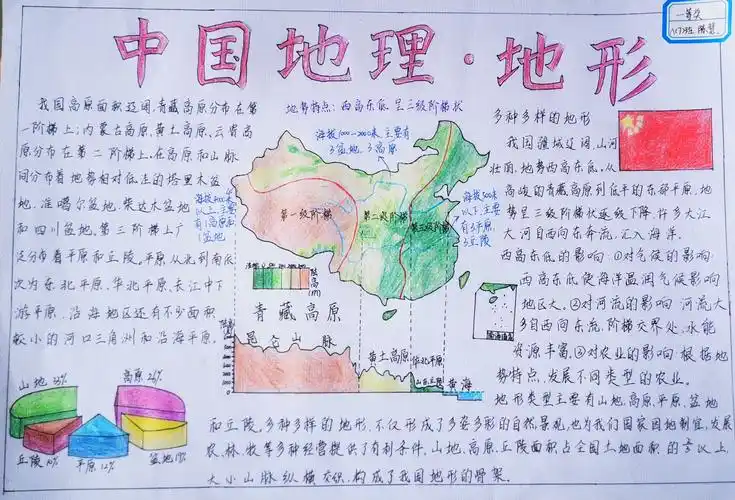 一等奖
中国地理·地形
我国高原面积辽阔,青藏高原分布在第
一阶梯上;内蒙古高原、黄土高原、云贵高
原分布在第二阶梯上.在高原和山脉
间分布着地势相对低洼的塔里木盆
地、准噶尔盆地、柴达木盆地
和四川盆地.第三阶梯上广
泛分布着平原和丘陵。平原从北到南依
次为东北平原、华北平原、长江中下
游平原.沿海地区还有不少面积
较小的河口三角洲和沿海平原.
地势特点:西高东低 呈三级阶梯状
海拔1000-2000米,主要有
3盆地、3高原
以上,主要
有1高原和
1盆地
海拔500米
以下,主要
有3平原
3丘陵
第一级阶梯
第二级阶梯
第三级阶梯
青藏高原
昆仑山脉
黄土高原
华北平原
山东丘陵
黄海
南海诸岛
多种多样的地形
我国疆域辽阔,山河
壮丽,地势西高东低.从
高峻的青藏高原到低平的东部平原,地
势呈三级阶梯状逐级下降,许多大江
大河自西向东奔流,汇入海洋.
西高东低的影响:①对气候的影响:
西高东低使海洋温润气候影响
地区大.②对河流的影响:河流大
多自西向东流,阶梯交界处,水能
资源丰富.③对农业的影响:根据地
势特点,发展不同类型的农业。
地形类型主要有山地、高原、平原、盆地
和丘陵.多种多样的地形,不仅形成了多姿多彩的自然景观,也为我们国家因地制宜,发展
农、林、牧等多种经营提供了有利条件.山地、高原、丘陵面积占全国土地面积的以上,
大小山脉纵横交织,构成了我国地形的骨架.
山地 33%
高原 26%
丘陵 10%
平原 12%
盆地 19%